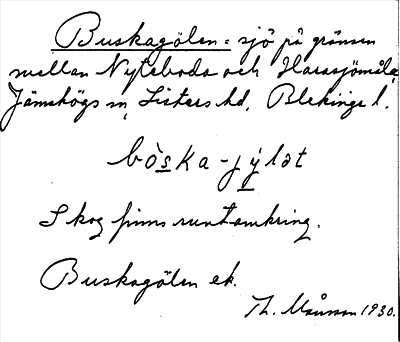 Buskagölen = sjö på gränsen
mellan Nyteboda och Harasjömåla
Jämshögs sn, Listers hd, Blekinge l.
bòska-jýlət
Skog finns runtomkring.
Buskagölen ek.
Th. Månsson 1930.